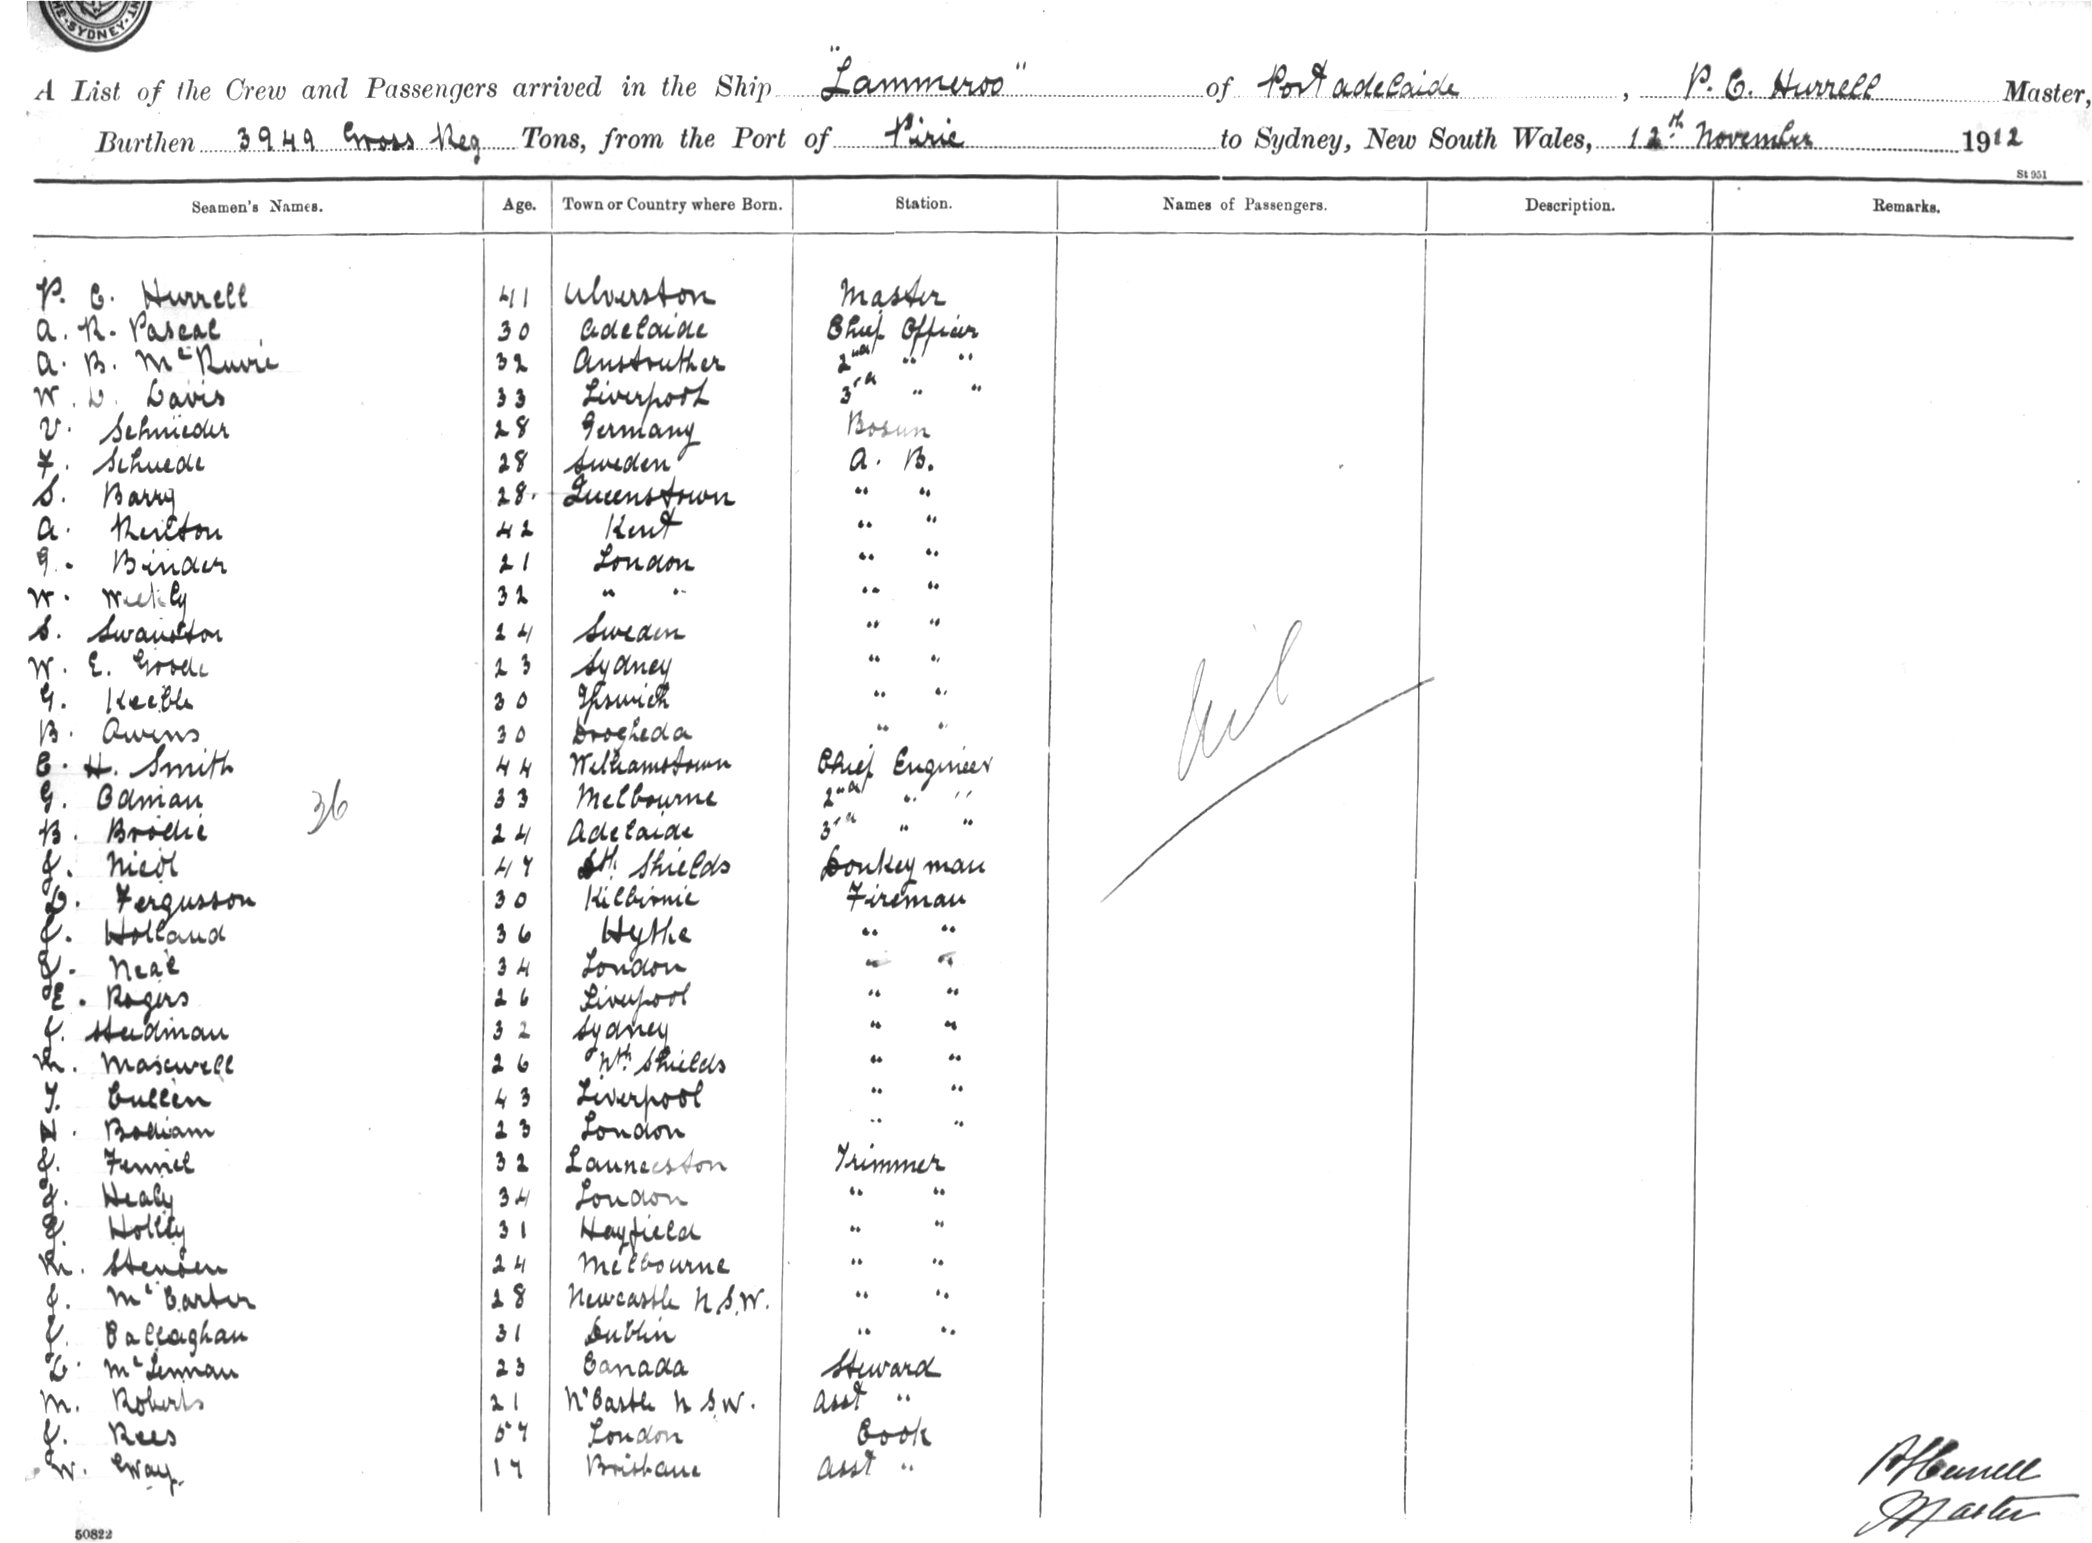 THE SYDNEY IN
A List of the Crew and Passengers arrived in the Ship "Lammeroo" of Port Adelaide, P. C. Hurrell Master,
Burthen 3949 Gross Reg Tons, from the Port of Pirie to Sydney, New South Wales, 12th November 1912
St 951
Seamen's Names. Age. Town or Country where Born. Station. Names of Passengers. Description. Remarks.
P. C. Hurrell 41 Ulverston Master
A. R. Pascal 30 Adelaide Chief Officer
A. B. McRuvie 32 Anstruther 2nd " "
W. D. Davis 33 Liverpool 3rd " "
V. Schnieder 28 Germany Bosun
F. Schuede 28 Sweden A. B.
S. Barry 28. Queenstown " "
A. Reilton 42 Kent " "
G. Binder 21 London " "
W. Weekly 32 " " " "
S. Swanston 24 Sweden " "
W. E. Goode 23 Sydney " "
G. Keeble 30 Ipswich " "
B. Owens 30 Drogheda " "
C. H. Smith 44 Williamstown Chief Engineer
G. Odman 33 Melbourne 2nd " "
36
B. Brodie 24 Adelaide 3rd " "
J. Nicol 47 Sth Shields Donkeyman
D. Fergusson 30 Kilbirnie Fireman
J. Holland 36 Hythe " "
J. Neal 34 London " "
E. Rogers 26 Liverpool " "
J. Steedman 32 Sydney " "
M. Maxwell 26 Nth Shields " "
T. Cullen 43 Liverpool " "
Bodiam 23 London " "
J. Fennel 32 Launceston Trimmer
J. Healy 34 London " "
Holly 31 Hayfield " "
M. Stensen 24 Melbourne " "
J. McCarter 28 Newcastle N.S.W. " "
J. Callaghan 31 Dublin " "
D. McLennan 23 Canada Steward
M. Roberts 21 N'Castle N.S.W. Asst "
J. Rees 57 London Cook
W. Gway. 17 Brisbane Asst "
Nil
P C Hurrell
Master
50822